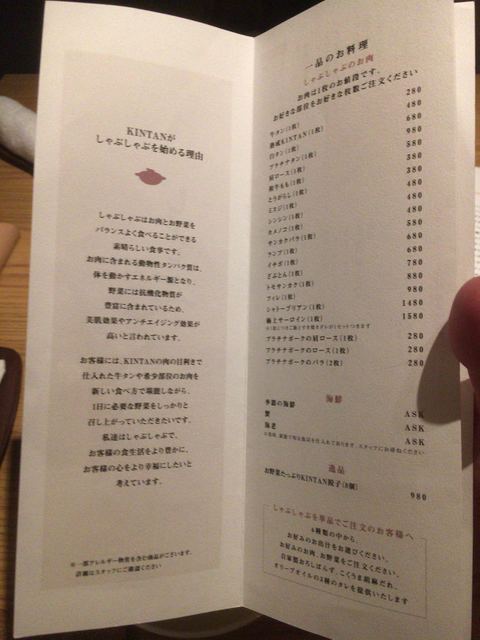 KINTANが
しゃぶしゃぶを始める理由
しゃぶしゃぶはお肉とお野菜を
バランスよく食べることができる
素晴らしい食事です。
お肉に含まれる動物性タンパク質は、
体を動かすエネルギー源となり、
野菜には抗酸化物質が
豊富に含まれているため、
美肌効果やアンチエイジング効果が
高いと言われています。
お客様には、KINTANの肉の目利きで
仕入れた牛タンや希少部位のお肉を
新しい食べ方で堪能しながら、
1日に必要な野菜をしっかりと
召し上がっていただきたいです。
私達はしゃぶしゃぶで、
お客様の食生活をより豊かに、
お客様の心をより幸福にしたいと
考えています。
※一部アレルギー物質を含む商品がございます。
詳細はスタッフにご確認ください
一品のお料理
しゃぶしゃぶのお肉
お肉は1枚のお値段です。
お好きな部位をお好きな枚数ご注文ください
牛タン(1枚) 280
熟成KINTAN(1枚) 480
白タン(1枚) 680
プラチナタン(1枚) 980
肩ロース(1枚) 580
和牛もも(1枚) 380
とうがらし(1枚) 380
ミスジ(1枚) 480
シンシン(1枚) 480
カメノコ(1枚) 480
サンカクバラ(1枚) 580
ランプ(1枚) 680
イチボ(1枚) 680
とぶとん(1枚) 780
トモサンカク(1枚) 880
フィレ(1枚) 980
シャトーブリアン(1枚) 1480
極上サーロイン(1枚) 1580
プラチナポークの肩ロース(1枚) 280
プラチナポークのロース(1枚) 280
プラチナポークのバラ(2枚) 280
海鮮
季節の海鮮 ASK
蟹 ASK
海老 ASK
逸品
お野菜たっぷりKINTAN餃子(8個) 980
しゃぶしゃぶを単品でご注文のお客様へ
4種類の中から、
お好みのお出汁をお選びください。
お好みのお肉、お野菜をご注文ください。
自家製おろしぽんず、こくうま胡麻だれ、
オリーブオイルの3種のタレを提供いたします